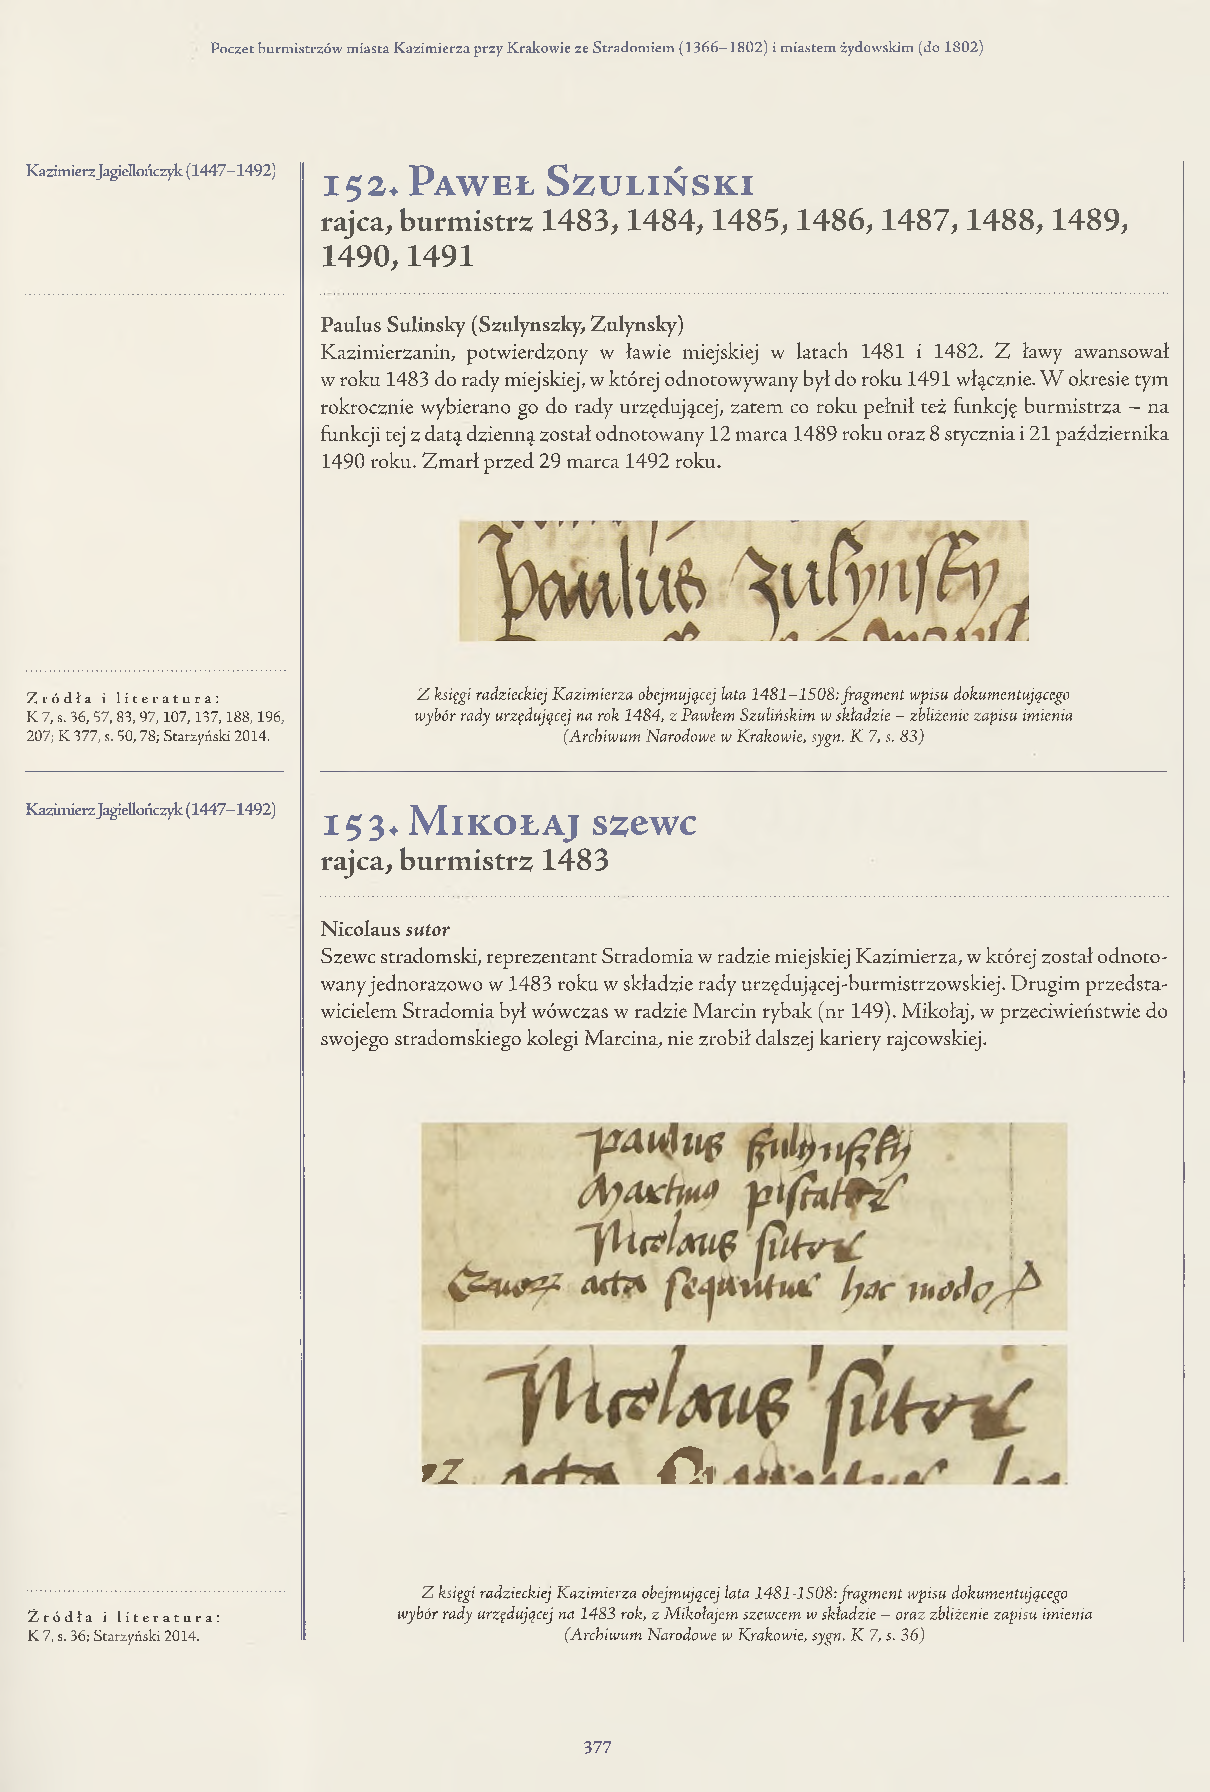 Poczet burmistrzów miasta Kazimierza przy Krakowie ze Stradomiem (1366–1802) i miastem żydowskim (do 1802)
Kazimierz Jagiellończyk (1447–1492)
152. Paweł Szuliński
rajca, burmistrz 1483, 1484, 1485, 1486, 1487, 1488, 1489,
1490, 1491
Paulus Sulinsky (Szulynszky, Zulynsky)
Kazimierzanin, potwierdzony w ławie miejskiej w latach 1481 i 1482. Z ławy awansował
w roku 1483 do rady miejskiej, w której odnotowywany był do roku 1491 włącznie. W okresie tym
rokrocznie wybierano go do rady urzędującej, zatem co roku pełnił też funkcję burmistrza – na
funkcji tej z datą dzienną został odnotowany 12 marca 1489 roku oraz 8 stycznia i 21 października
1490 roku. Zmarł przed 29 marca 1492 roku.
Paulus Zulynsky
Źródła i literatura:
K 7, s. 36, 57, 83, 97, 107, 137, 188, 196,
207; K 377, s. 50, 78; Starzyński 2014.
Z księgi radzieckiej Kazimierza obejmującej lata 1481–1508: fragment wpisu dokumentującego
wybór rady urzędującej na rok 1484, z Pawłem Szulińskim w składzie – zbliżenie zapisu imienia
(Archiwum Narodowe w Krakowie, sygn. K 7, s. 83)
Kazimierz Jagiellończyk (1447–1492)
153. Mikołaj szewc
rajca, burmistrz 1483
Nicolaus sutor
Szewc stradomski, reprezentant Stradomia w radzie miejskiej Kazimierza, w której został odnoto-
wany jednorazowo w 1483 roku w składzie rady urzędującej-burmistrzowskiej. Drugim przedsta-
wicielem Stradomia był wówczas w radzie Marcin rybak (nr 149). Mikołaj, w przeciwieństwie do
swojego stradomskiego kolegi Marcina, nie zrobił dalszej kariery rajcowskiej.
Paulus Szulynszky
Martinus piscator
Nicolaus sutor
acta sequuntur hoc modo
Nicolaus sutor
Źródła i literatura:
K 7, s. 36; Starzyński 2014.
Z księgi radzieckiej Kazimierza obejmującej lata 1481-1508: fragment wpisu dokumentującego
wybór rady urzędującej na 1483 rok, z Mikołajem szewcem w składzie – oraz zbliżenie zapisu imienia
(Archiwum Narodowe w Krakowie, sygn. K 7, s. 36)
377